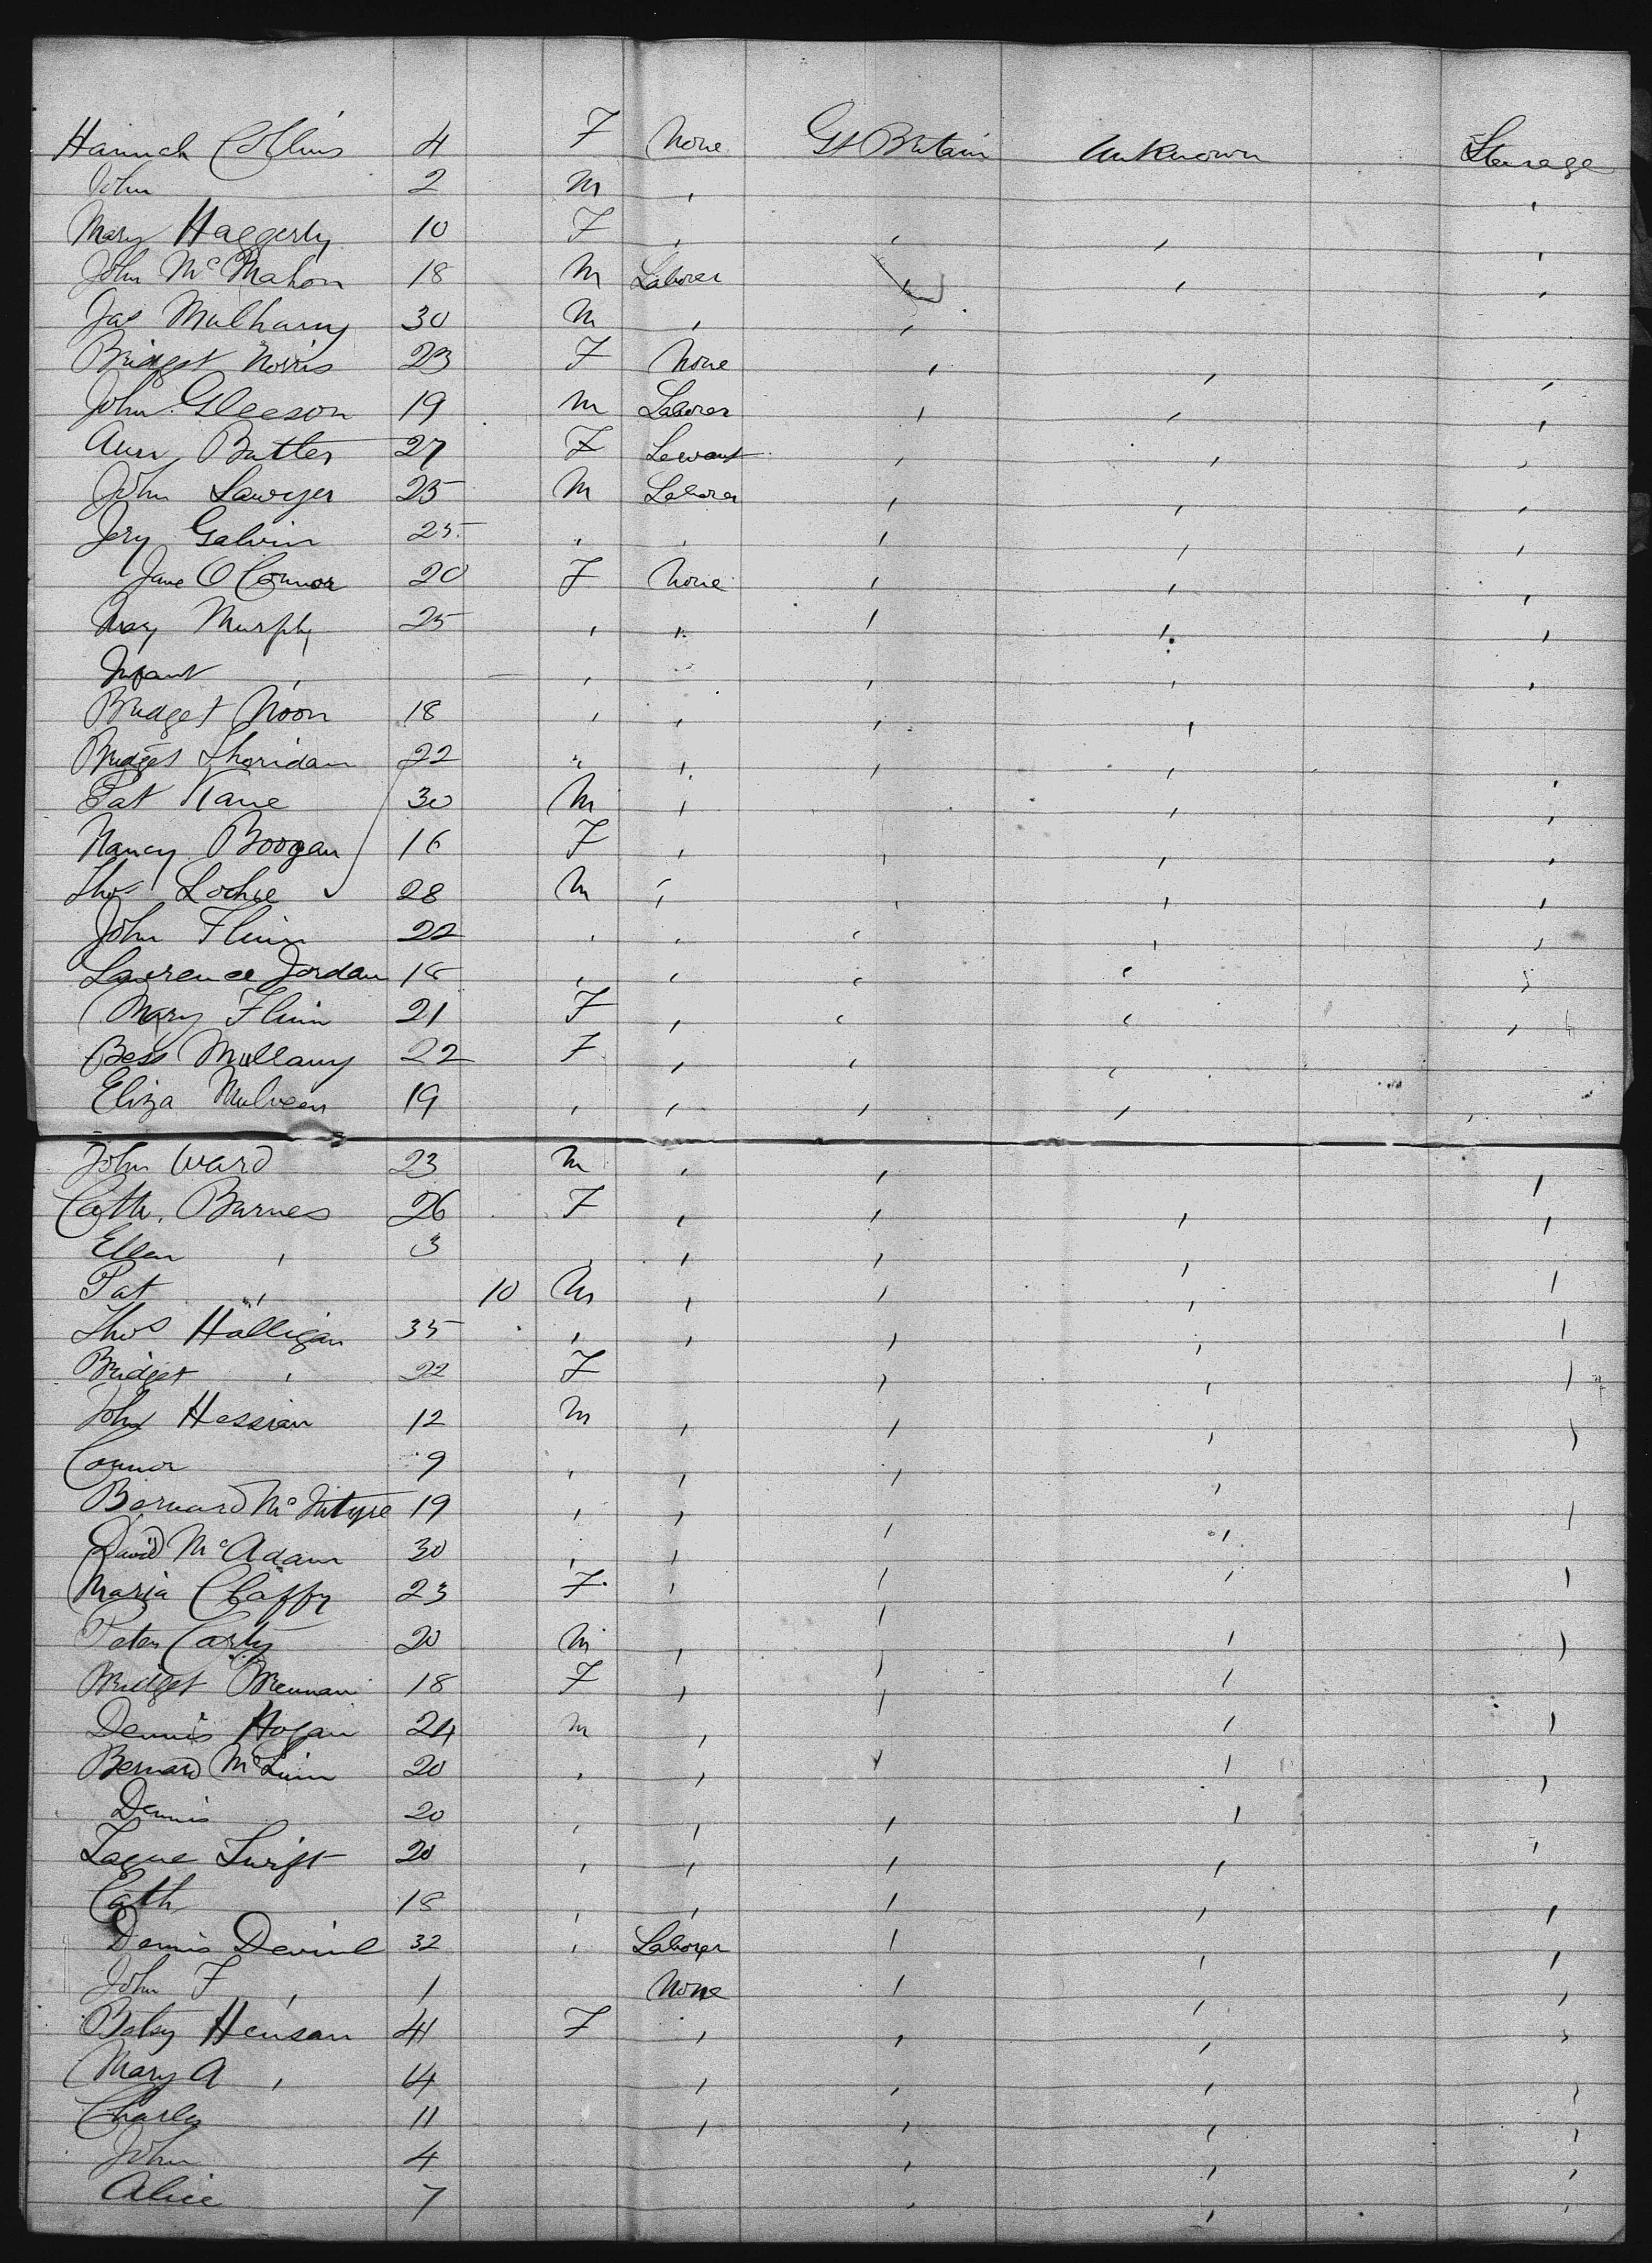 Hannah Collins 4 F None Gt Britain Unknown Steerage
John 2 M , ,
Mary Haggerty 10 F , , , ,
John McMahon 18 M Laborer , , ,
Jas Mulhany 30 M , ,
Bridget Norris 23 F None , , ,
John Gleeson 19 M Laborer , , ,
Ann Butler 27 F Servant , , ,
John Sawyer 25 M Laborer , , ,
Jery Galvin 25 , , , , ,
Jane O Connor 20 F None , , ,
May Murphy 25 , , , , ,
Infant , — , , , ,
Bridget Noon 18 , , , ,
Bridget Sheridan 22 " , , , ,
Pat Kane 30 M , , ,
Nancy Boogan 16 F , , , ,
Thos Lochie 28 M , , , ,
John Flinn 22 , , , , ,
Lawrence Jordan 18 , , , , ,
Mary Flinn 21 F , , , ,
Bess Mullany 22 F , , ,
Eliza Mulveen 19 , , , , ,
John Ward 23 M , , ,
Cath. Barnes 26 F , , , ,
Ellen , 3 , , , ,
Pat , 10 M , , , ,
Thos Halligan 35 , , , , ,
Bridget , 22 F , , ,
John Hessian 12 M , , , ,
Connor 9 , , , ,
Bernard McIntyre 19 , , , , ,
David McAdam 30 , , , ,
Maria Claffy 23 F , , ,
Peter Carty 20 M , , , ,
Bridget Brennan 18 F , , ,
Dennis Hogan 24 M , , , ,
Bernard McLinn 20 , , , , ,
Dennis 20 , , , ,
Swift 20 , , , , ,
Cath 18 , , , , ,
Dennis Devine 32 , Laborer , , ,
John F , 1 None , , ,
Betsy Henson 41 F , , , ,
Mary A , 14 , , , ,
Charles 11 , , , ,
John 4 , , ,
Alice 7 , , ,